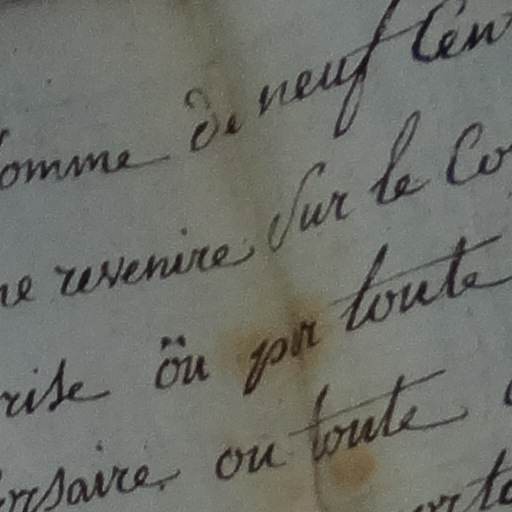 Somme de neuf Cen
ne revenire Sur le Co
rise öu pr toute
orsaire, ou toute